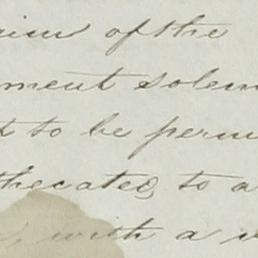 of the
ment solem
t to be perm
thecated, to a
with a